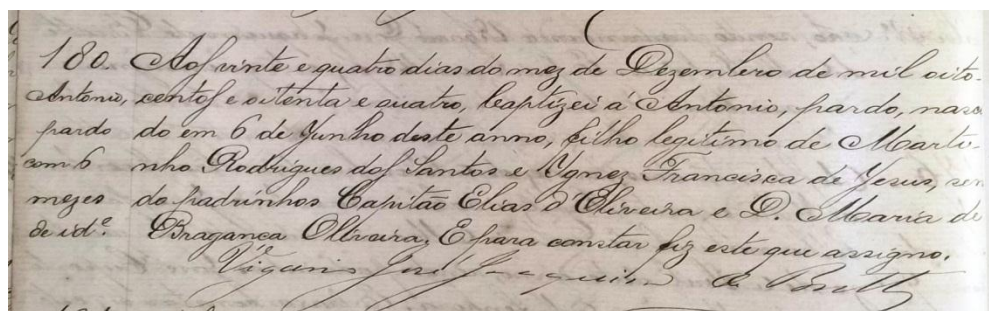 180 Aos vinte e quatro dias do mez de Dezembro de mil oito-
Antonio, centos e oitenta e quatro, baptizei á Antonio, pardo, nasci
pardo do em 6 de Junho deste anno, filho legitimo de Marti-
com 6 nho Rodrigues dos Santos e Ygnez Francisca de Jesus, sen
mezes do padrinhos Capitão Elias d'Oliveira e D. Maria de
de id.e Bragança Olliveira, E para constar fiz este que assigno.
Vigario José Joaquim de